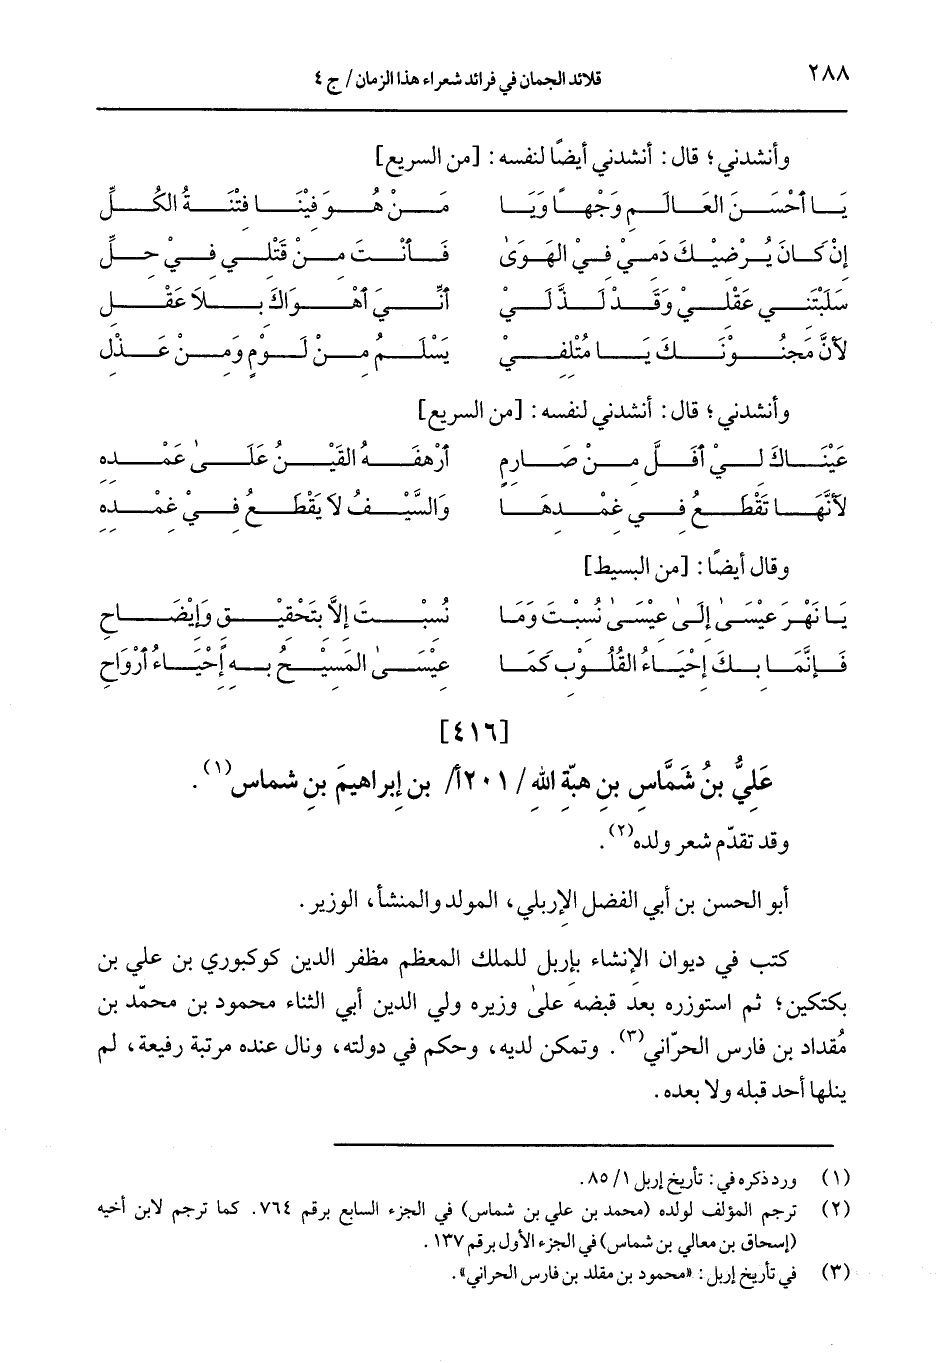 ٢٨٨
قلائد الجمان في فرائد شعراء هذا الزمان/ ج ٤
وأنشدني؛ قال: أنشدني أيضًا لنفسه: [من السريع]
يَا أَحْسَنَ العَالَمِ وَجْهًا وَيَا مَنْ هُوَ فِيْنَا فِتْنَةُ الكُلِّ
إِنْ كَانَ يُرْضِيْكَ دَمِيْ فِي الهَوَىٰ فَأَنْتَ مِنْ قَتْلِي فِي حِلِّ
سَلَبْتَنِي عَقْلِيْ وَقَدْ لَذَّ لَيْ أَنِّي أَهْوَاكَ بِلاَ عَقْلِ
لأَنَّ مَجنُوْنَكَ يَا مُتْلِفِيْ يَسْلَمُ مِنْ لَوْمٍ وَمِنْ عَذْلِ
وأنشدني؛ قال: أنشدني لنفسه: [من السريع]
عَيْنَاكَ لِيْ أَفَلَّ مِنْ صَارِمٍ أَرْهَفَهُ القَيْنُ عَلَىٰ عَمْدِهِ
لأَنَّهَا تَقْطَعُ فِي غِمْدِهَا وَالسَّيْفُ لاَ يَقْطَعُ فِيْ غِمْدِهِ
وقال أيضًا: [من البسيط]
يَا نَهْرَ عِيْسَىٰ إِلَىٰ عِيْسَىٰ نُسِبْتَ وَمَا نُسِبْتَ إِلاَّ بِتَحْقِيْقٍ وَإِيْضَاحِ
فَإِنَّمَا بِكَ إِحْيَاءُ القُلُوْبِ كَمَا عِيْسَىٰ المَسِيْحُ بِهِ إِحْيَاءُ أَرْوَاحِ
[٤١٦]
عَلِيُّ بنُ شَمَّاسِ بنِ هبَةِ اللهِ / ٢٠١أ/ بنِ إبراهيمَ بنِ شماسِ(١).
وقد تقدّم شعر ولده(٢).
أبو الحسن بن أبي الفضل الإربلي، المولد والمنشأ، الوزير.
كتب في ديوان الإنشاء بإربل للملك المعظم مظفر الدين كوكبوري بن علي بن
بكتكين؛ ثم استوزره بعد قبضه علىٰ وزيره ولي الدين أبي الثناء محمود بن محمّد بن
مُقداد بن فارس الحرّاني(٣). وتمكن لديه، وحكم في دولته، ونال عنده مرتبة رفيعة، لم
ينلها أحد قبله ولا بعده.
(١) ورد ذكره في: تأريخ إربل ١/ ٨٥.
(٢) ترجم المؤلف لولده (محمد بن علي بن شماس) في الجزء السابع برقم ٧٦٤. كما ترجم لابن أخيه
(إسحاق بن معالي بن شماس) في الجزء الأول برقم ١٣٧.
(٣) في تأريخ إربل: «محمود بن مقلد بن فارس الحراني».